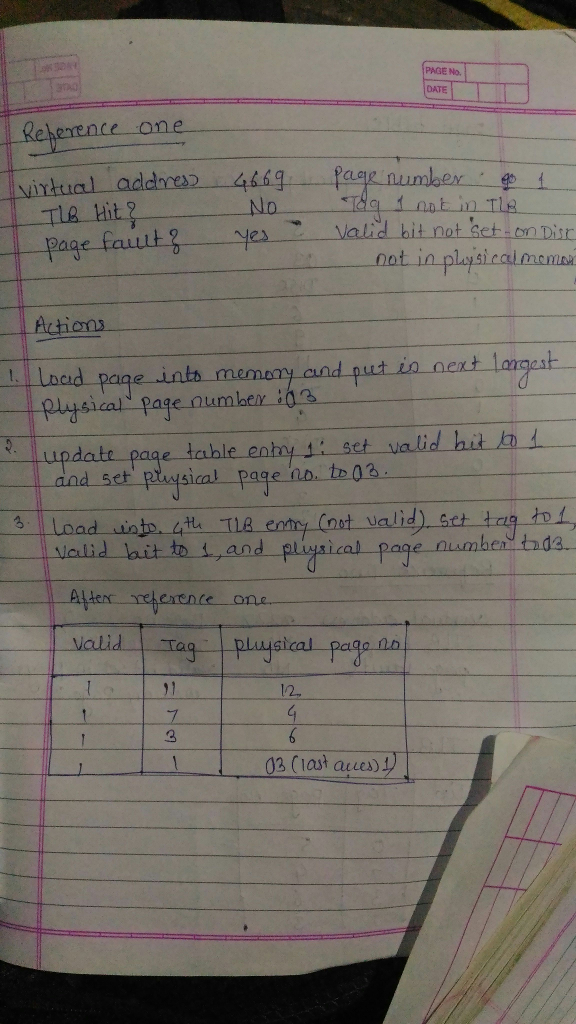 PAGE No.
DATE
Reference one
Virtual address 4669 page number 1
TLB Hit? No Tag 1 not in TLB
page fault? yes Valid bit not set-on Disc
not in physical memor
Actions
1. Load page into memory and put in next largest
physical page number :03
2. update page table entry 1: set valid bit to 1
and set physical page no. to 03.
3. Load into 4th TLB entry (not valid). set tag to 1,
Valid bit to 1, and physical page number to 03.
After reference one.
Valid Tag physical page no
1 11 12
1 7 4
1 3 6
1 1 03 (last acces) 1)